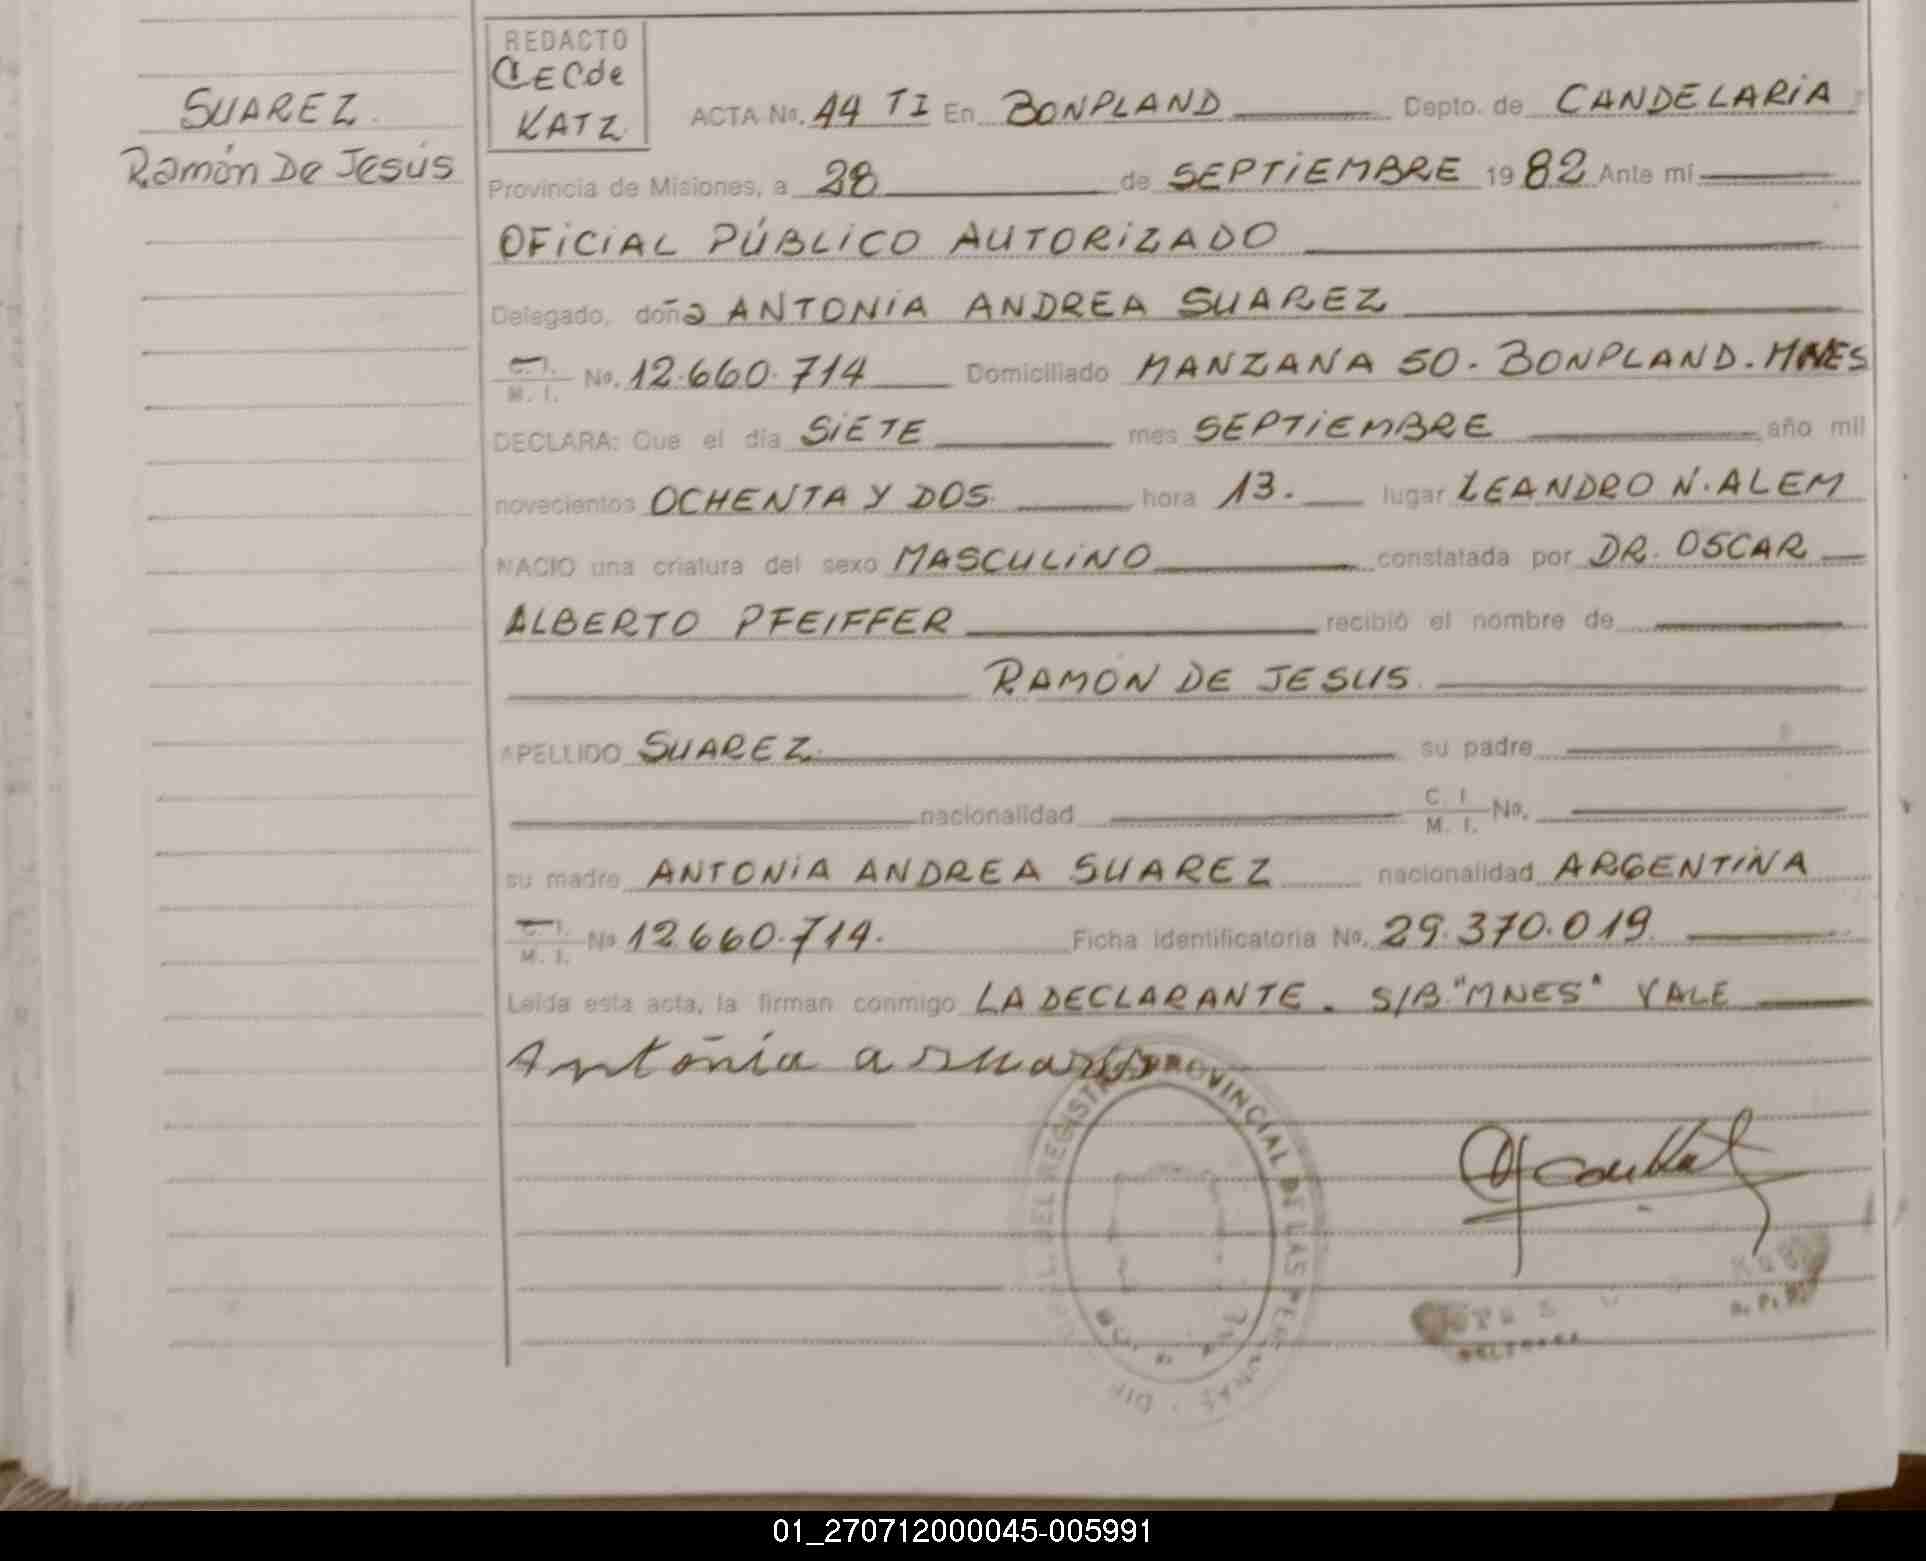 SUAREZ.
Ramón De Jesús
REDACTO
CECde
KATZ
ACTA No. 44 TI En BONPLAND Depto. de CANDELARIA
Provincia de Misiones, a 28 de SEPTIEMBRE 1982 Ante mí
OFICIAL PÚBLICO AUTORIZADO
Delegado, doña ANTONIA ANDREA SUAREZ
C. I.
M. I. No. 12.660.714 Domiciliado MANZANA 50. BONPLAND. MNES
DECLARA: Que el día SIETE mes SEPTIEMBRE año mil
novecientos OCHENTA Y DOS. hora 13. lugar LEANDRO N. ALEM
NACIO una criatura del sexo MASCULINO constatada por DR. OSCAR
ALBERTO PFEIFFER recibió el nombre de
RAMÓN DE JESUS.
APELLIDO SUAREZ. su padre
nacionalidad C. I. M. I. No.
su madre ANTONIA ANDREA SUAREZ nacionalidad ARGENTINA
C. I.
M. I. No 12.660.714. Ficha identificatoria No. 29.370.019.
Leída esta acta, la firman conmigo LA DECLARANTE. S/B."MNES" VALE
Antoñia a suares
DEL REGISTRO PROVINCIAL DE LAS PERSONAS
01_270712000045-005991